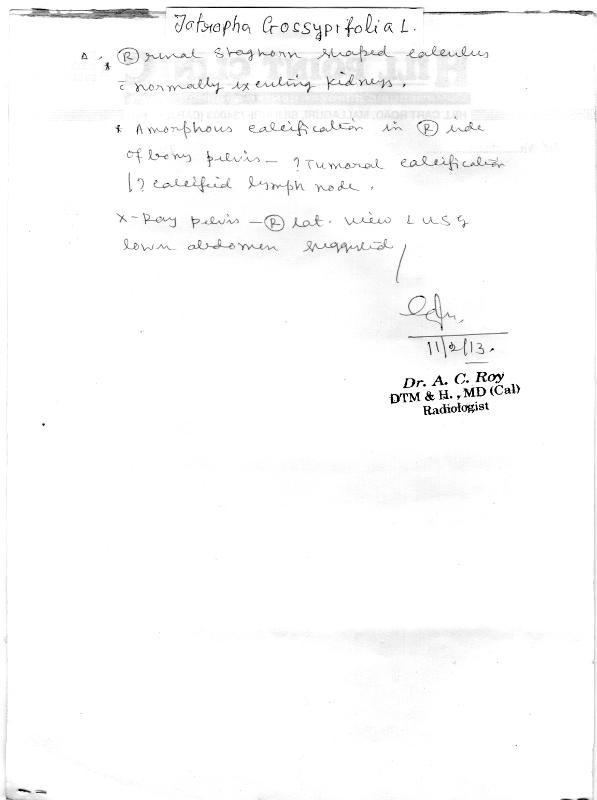 Jatropha Gossypifolia L.
Δ * Ⓡ renal staghorn shaped calculus
c̄ normally excreting kidneys.
* Amorphous calcification in Ⓡ side
of bony pelvis – ? Tumoral calcification
/ ? calcified lymph node.
X-Ray pelvis – Ⓡ lat. view & USG
lower abdomen suggested
11/2/13.
Dr. A. C. Roy
DTM & H. , MD (Cal)
Radiologist